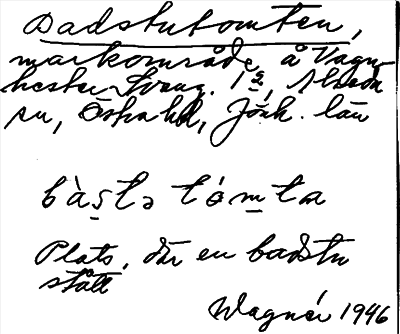 Badstutomten,
markområde å Vagn-
hester Svang. 1 2, Alseda
sn, Östra hd, Jönk. län
bàs̱tə tómta
Plats, där en badstu
stått
Wagnér 1946